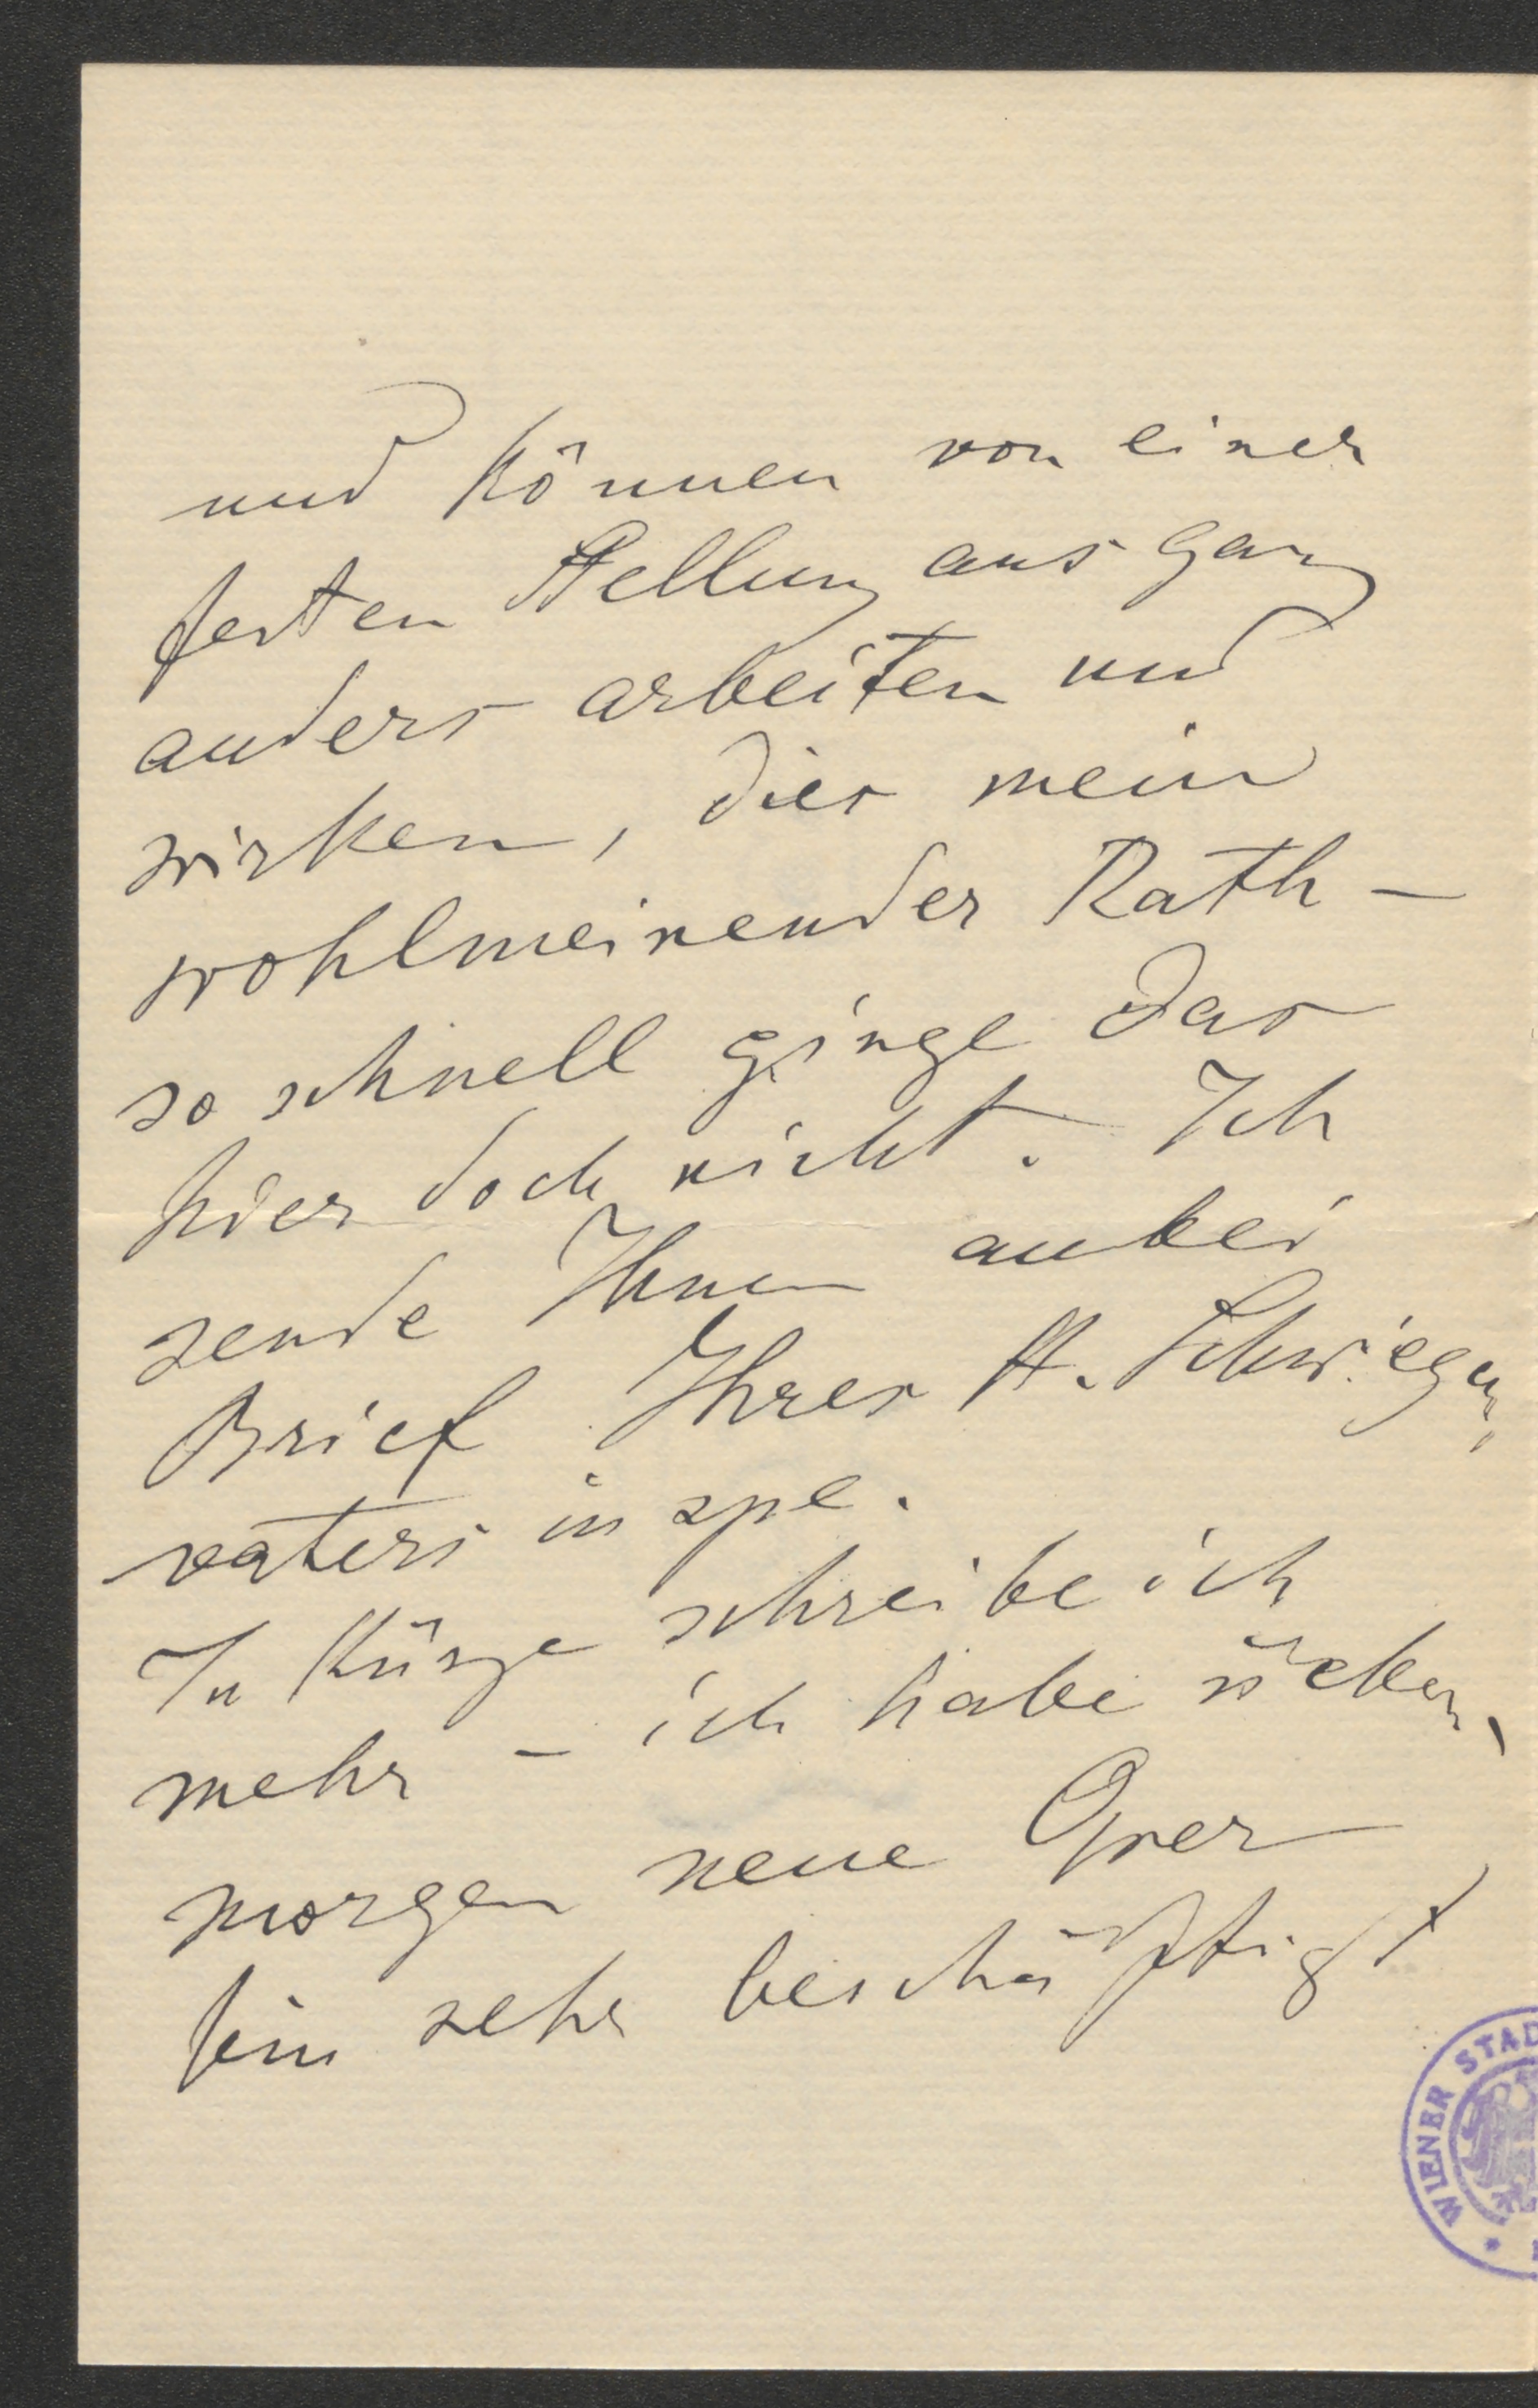 und können von einer
festen Stellung aus ganz
anders arbeiten und
wirken, dies mein
wohlmeinender Rath –
so schnell ginge das
hier doch nicht. Ich
sende Ihnen anbei
Brief Ihres H. Schwieger
vaters in spe.
In Kürze schreibe ich
mehr – ich habe
morgen neue Oper
bin sehr beschäftigt
WIENER STAD